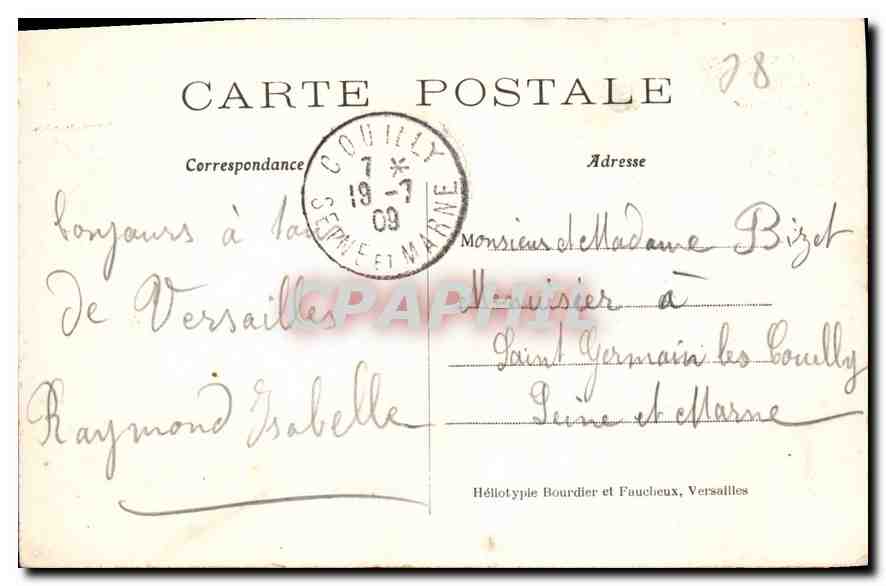 78
CARTE POSTALE
Correspondance
Adresse
COUILLY
7 *
19 - 7
09
SEINE ET MARNE
bonjours à
de Versailles
Raymond Isabelle
Monsieur et Madame Bizet
Menuisier à
Saint Germain les Couilly
Seine et Marne
CPAPHIL
Héliotypie Bourdier et Faucheux, Versailles